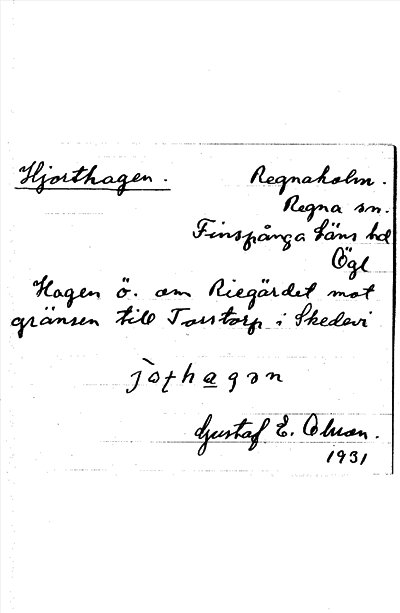 Hjorthagen.
Regnaholm.
Regna sn.
Finspånga läns hd
Ögl
Hagen ö. om Riegärdet mot
gränsen till Torstorp i Skedevi
Gustaf E.
1931